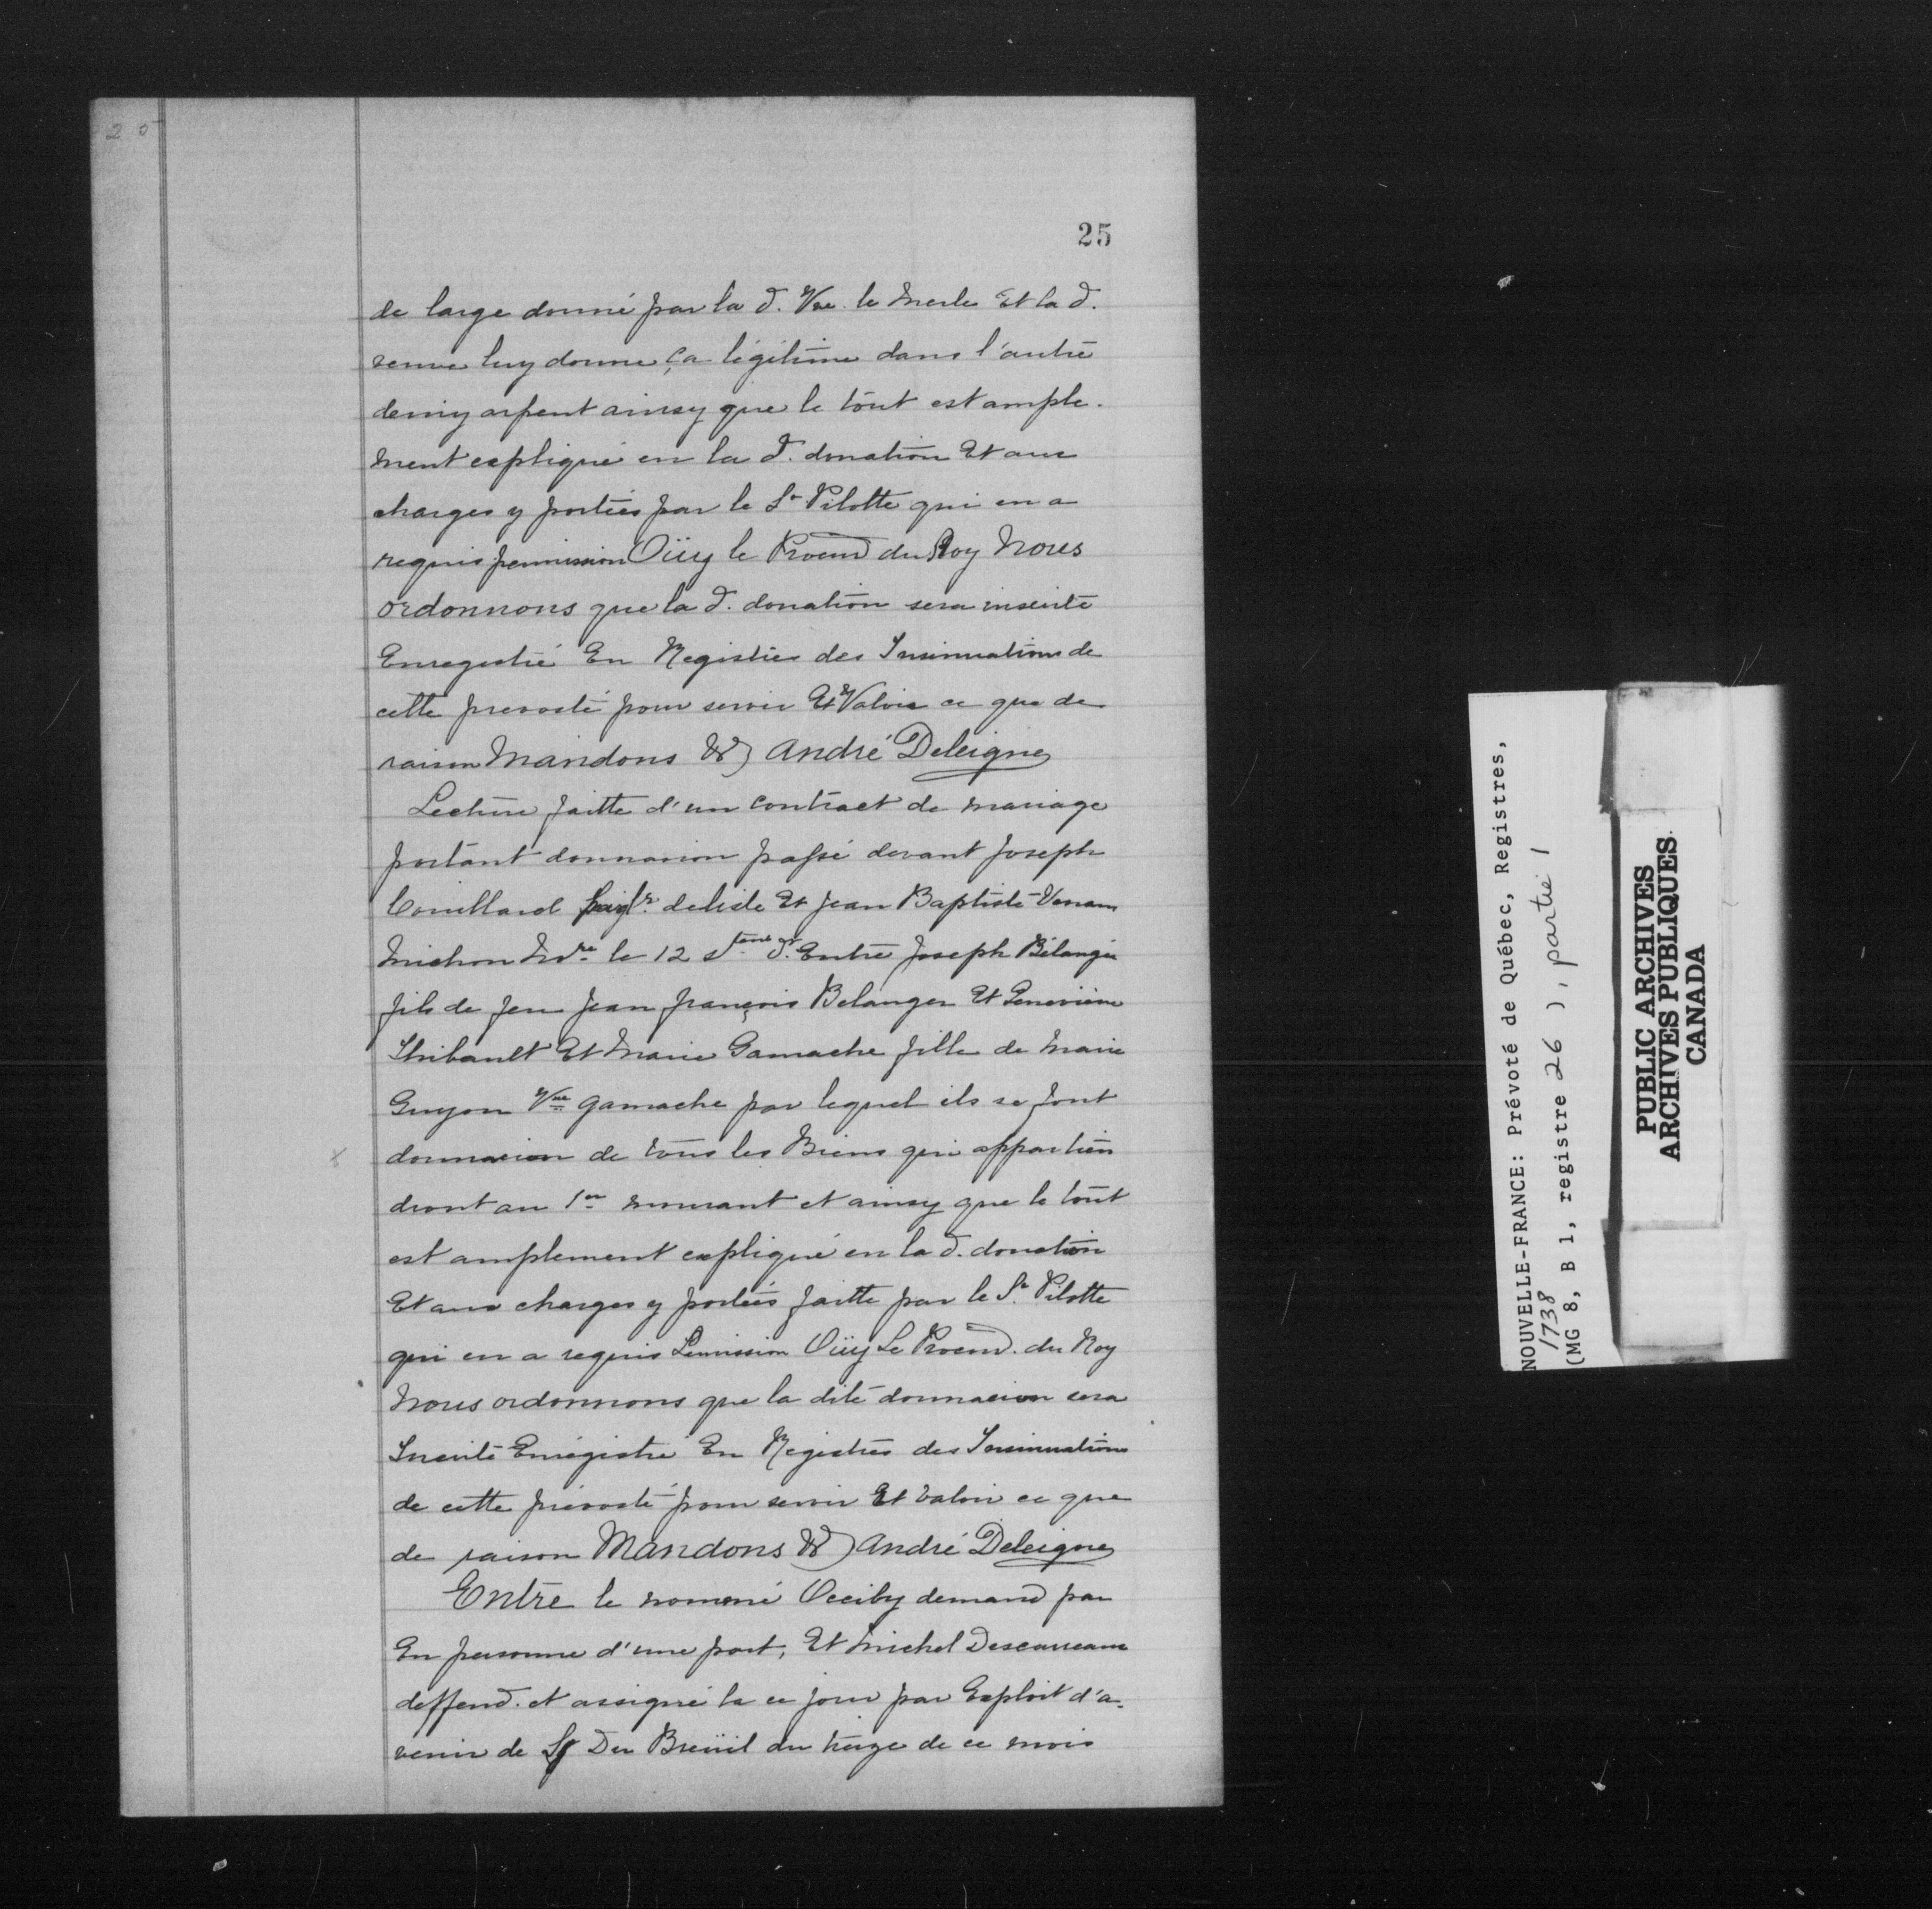 25
25
de large donné par la d. Vve le Merle Et la d.
veuve luy donne ça légitime dans l'autre
demy arpent ainsy que le tout est ample-
ment expliqué en la d. donation Et aux
charges y portées par le Sr Pilotte qui en a
requis permission Oüy le Procur du Roy Nous
ordonnons que la d. donation sera inscrite
Enregistré En Registres des Insinuations de
cette prevosté pour servir Et Valoir ce que de
raison Mandons &) André Deleigne
Lecture faitte d'un contract de mariage
portant donnation passé devant Joseph
Couillard seigr. delisle Et Jean Baptiste
Michon Nre le 12 d. Entre Joseph Bélanger
fils de feu Jean françois Belanger Et Geneviève
Thibault Et Marie Gamache fille de Marie
Guyon Vve gamache par lequel ils se font
donnacion de tous les Biens qui appartien
dront au 1er mourant et ainsy que le tout
est amplement expliqué en la d. donation
Et aux charges y portées faitte par le Sr Pilotte
qui en a requis Permission Oüy Le Procur. du Roy
Nous ordonnons que la dite donnacion sera
Inscrite Enrégistré En Registres des Insinuations
de cette prévosté pour servir Et valoir ce que
de raison Mandons &) André Deleigne
Entre le nommé demand par
En personne d'une part, Et Michel Descarreaux
deffend. et assigné la ce jour par Exploit d'a-
venir de Du Breüil du treize de ce mois
NOUVELLE-FRANCE: Prévoté de Québec, Registres,
1738
(MG 8, B 1, registre 26 ), partie 1
PUBLIC ARCHIVES
ARCHIVES PUBLIQUES
CANADA